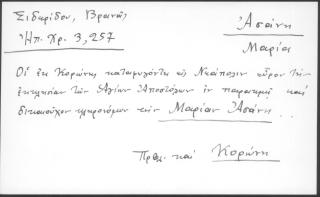 Σιδερίδου, Βρανᾶς
Ἠπ. Χρ. 3, 257
Ἀσάνη
Μαρία
Οἱ ἐκ Κορώνης καταφυγόντες εἰς Νεάπολιν εὗρον τὴν
ἐκκλησίαν τῶν Ἁγίων Ἀποστόλων ἐν παρακμῇ καὶ
δικαιοῦχον κληρονόμον τὴν Μαρίαν Ἀσάνη...
Πρβλ. καὶ Κορώνη